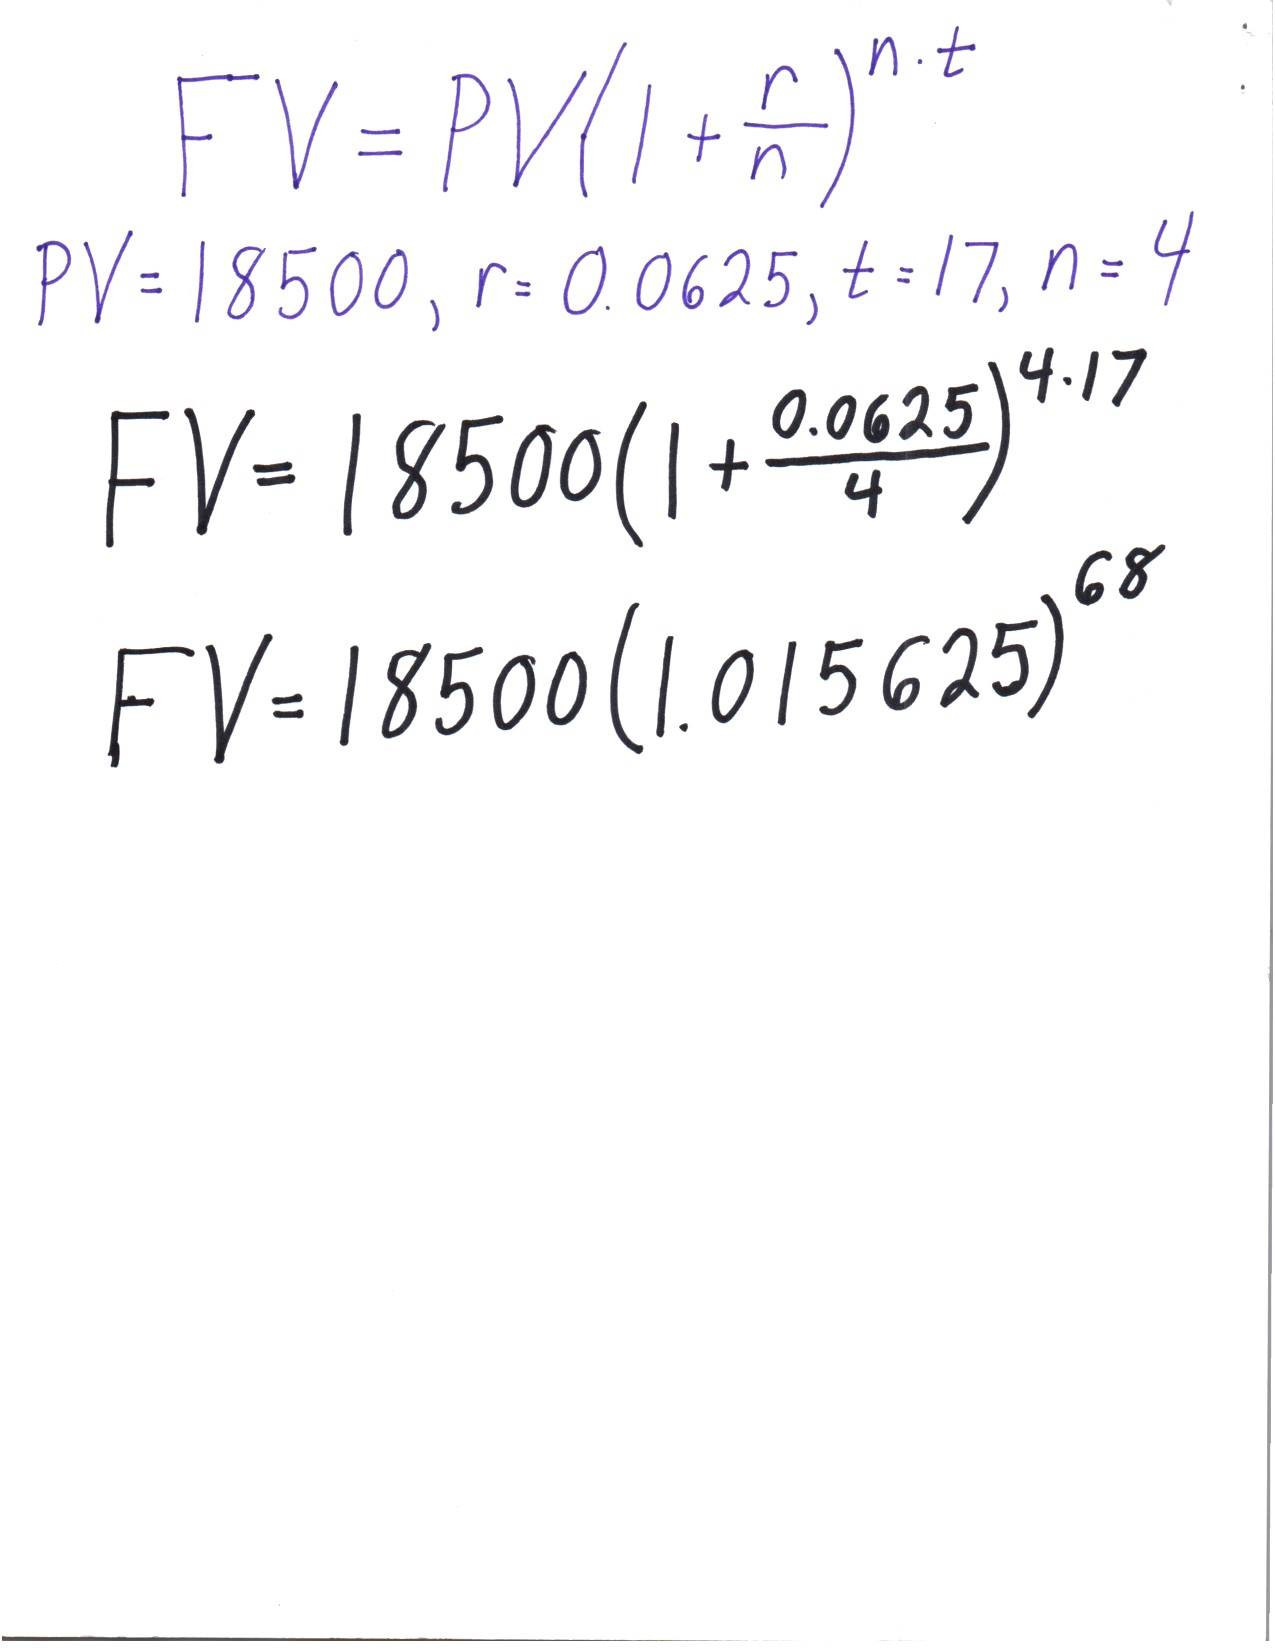 FV = PV(1 + r/n)^n·t
PV = 18500, r = 0.0625, t = 17, n = 4
FV = 18500(1 + 0.0625/4)^4·17
FV = 18500(1.015625)^68